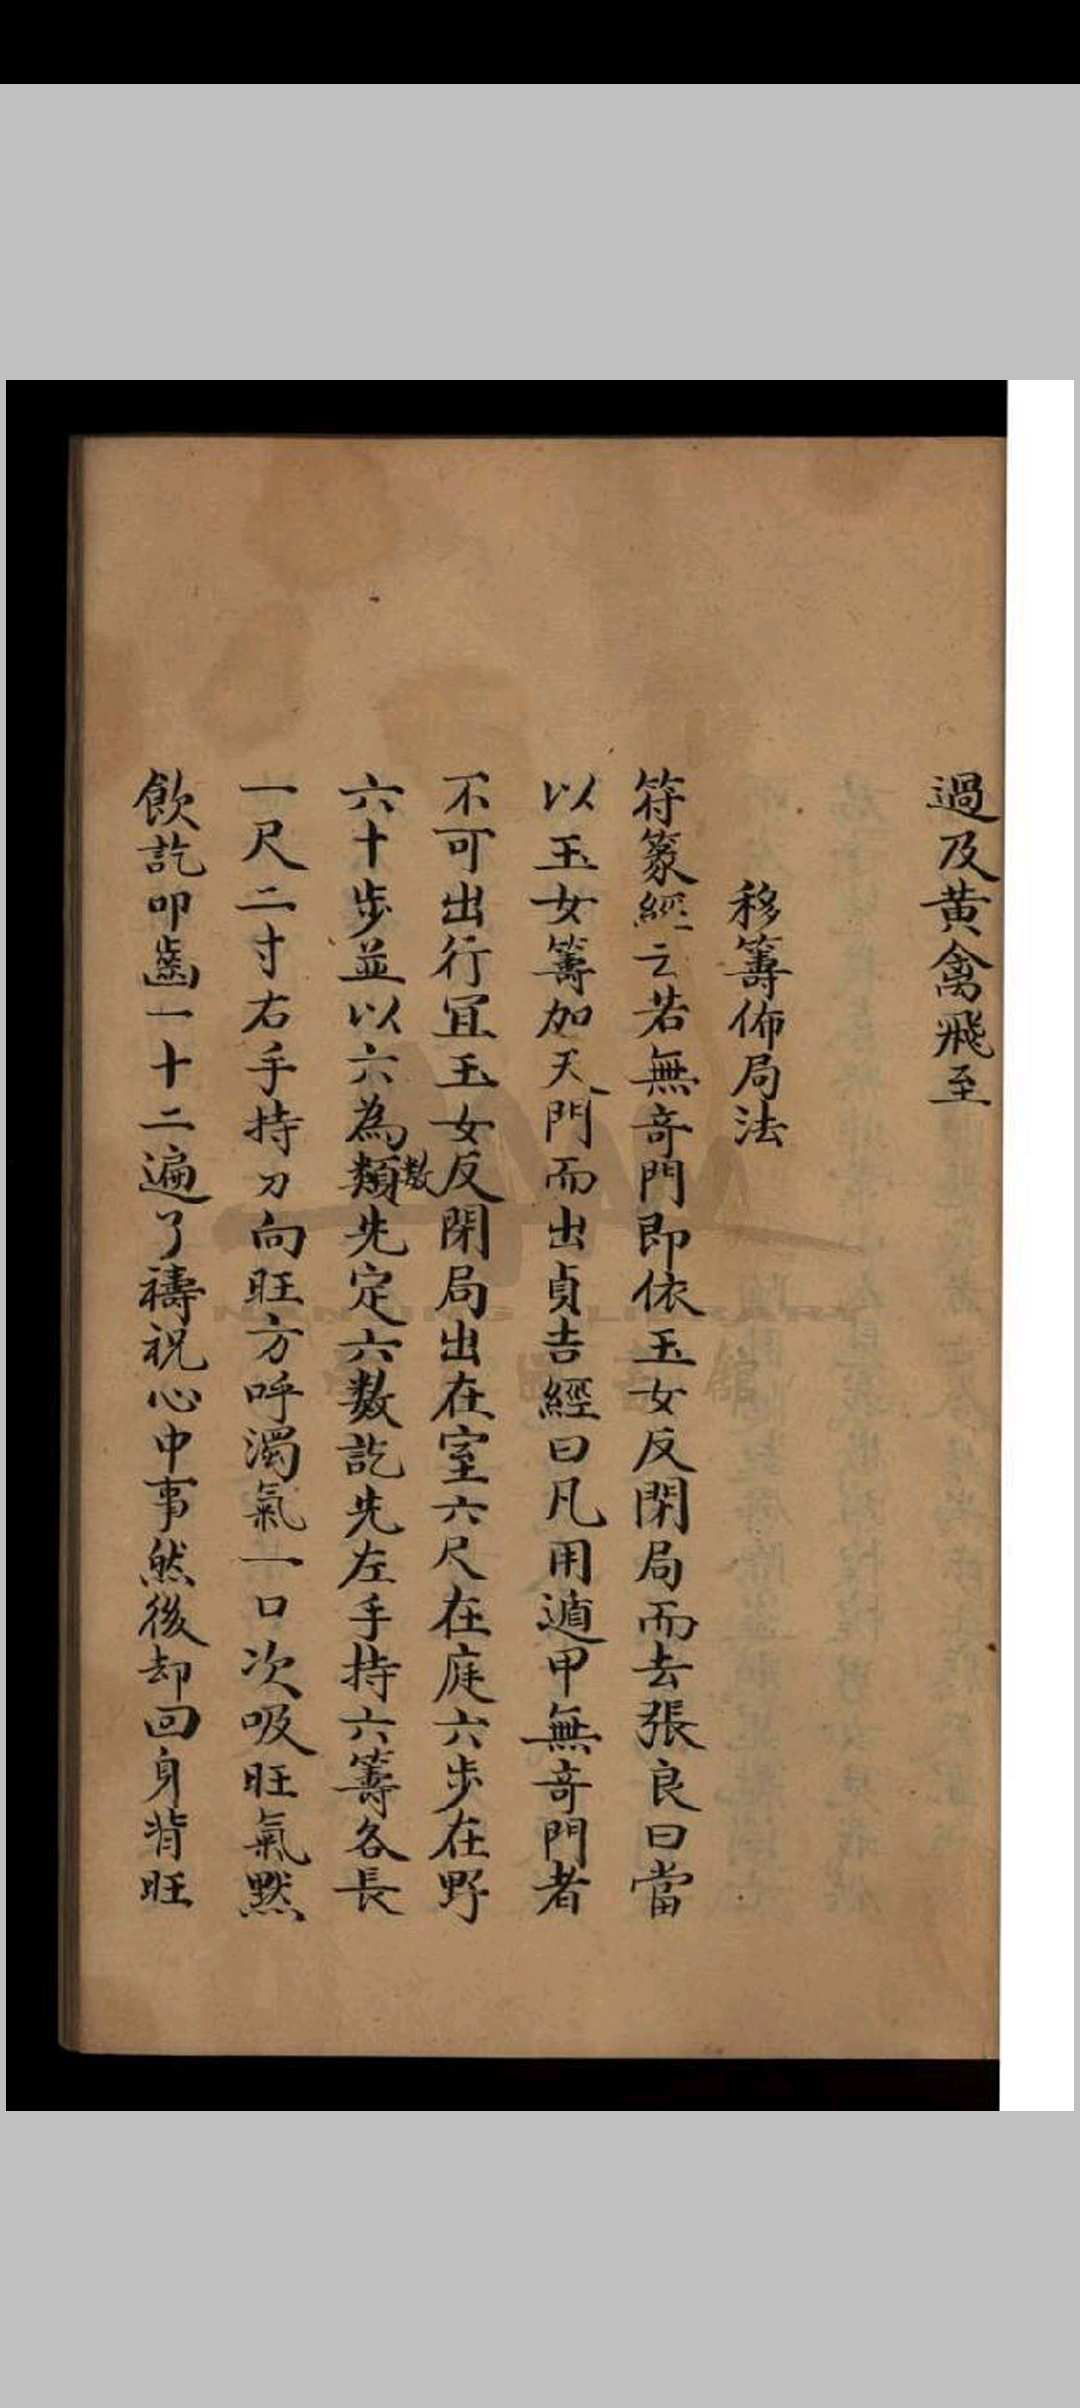 過及黄禽飛至
移籌佈局法
符篆經云若無奇門即依玉女反閉局而去張良曰當
以玉女籌加天門而出貞吉經曰凡用遁甲無奇門者
不可出行冝玉女反閉局出在室六尺在庭六步在野
六十步並以六為類數先定六數訖先左手持六籌各長
一尺二寸右手持刀向旺方呼濁氣一口次吸旺氣黙
飲訖叩齒一十二遍了禱祝心中事然後却回身背旺
NANJING LIBRARY